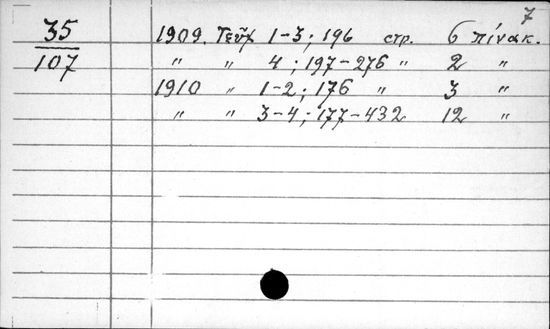 7
35 1909. Τεῦχ 1-3; 196 стр. 6 πίνακ.
107 " " 4; 197-276 " 2 "
1910 " 1-2; 176 " 3 "
" " 3-4; 177-432 12 "